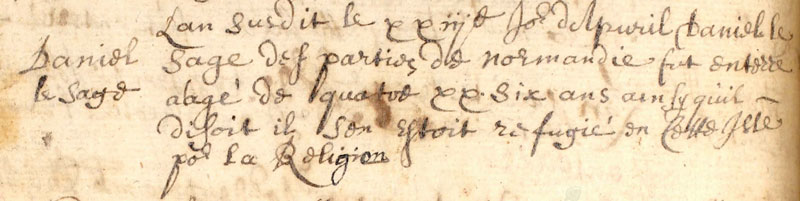 Lan susdit le xxiije Jor dApvril Daniel le
Daniel Sage des parties de normandie fut enterré
le Sage abagé de quatre xx. six ans ainsy quil
disoit il sen estoit refugié en Cette Isle
por la Religion